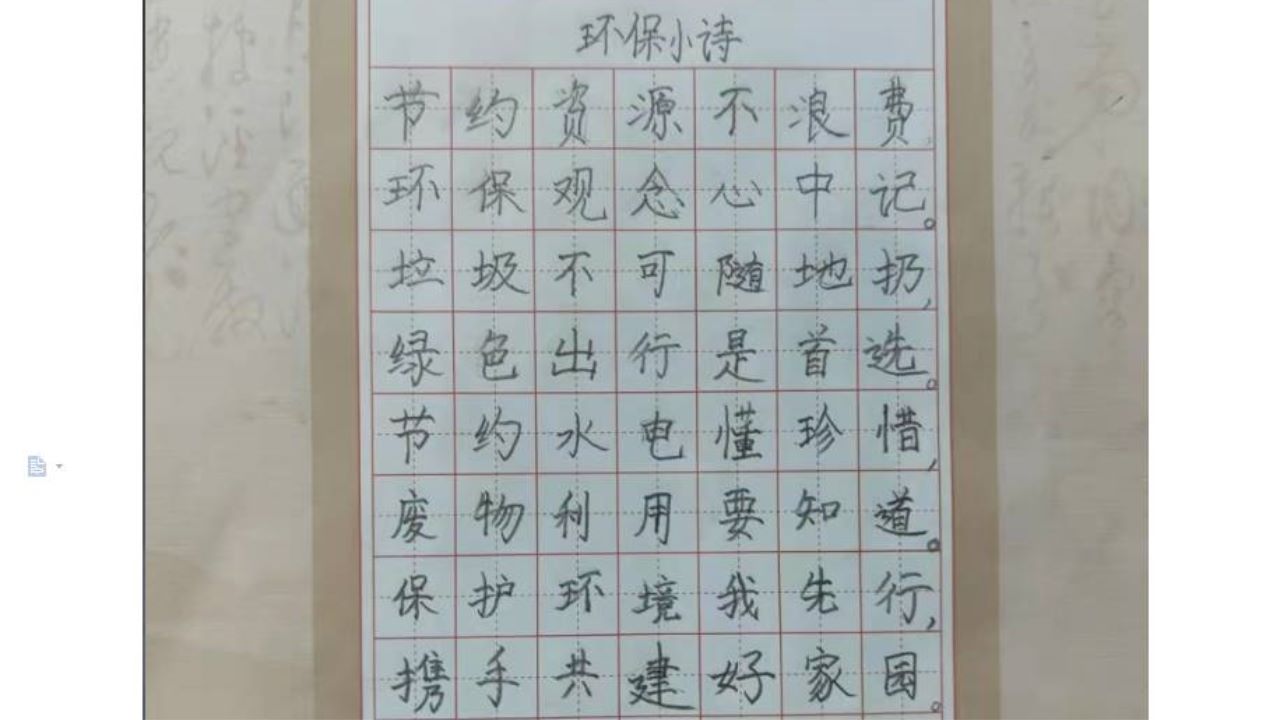 环保小诗
节约资源不浪费,
环保观念心中记。
垃圾不可随地扔,
绿色出行是首选。
节约水电懂珍惜,
废物利用要知道。
保护环境我先行,
携手共建好家园。